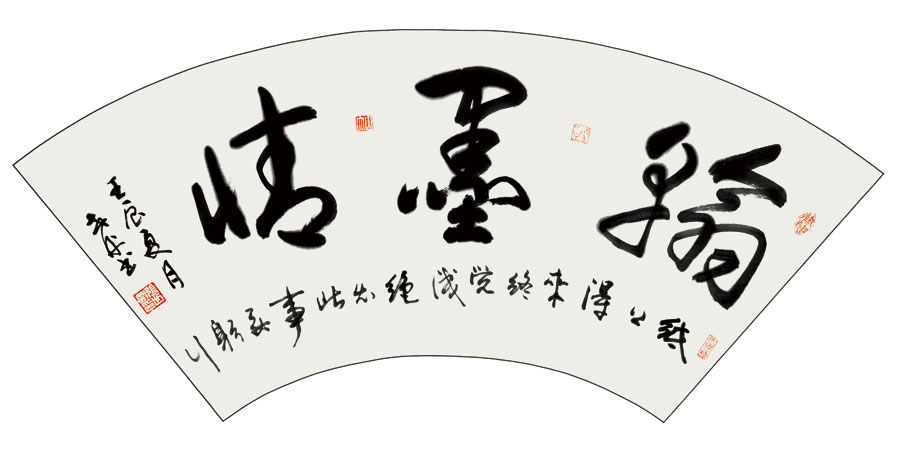 翰墨情
纸上得来终觉浅绝知此事要躬行
壬辰夏月